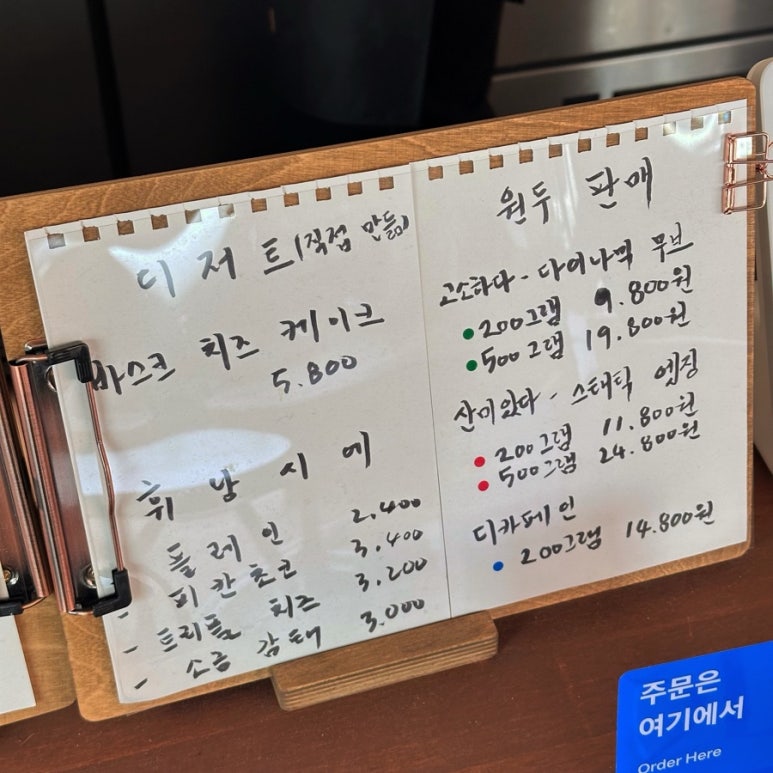 디저트(직접 만듦)
바스크 치즈 케이크
5.800
휘낭시에
플레인 2.400
- 피칸초코 3.400
- 트리플 치즈 3.200
- 소금 감태 3.000
원두 판매
고소하다 - 다이나믹 무브
200그램 9.800원
500그램 19.800원
산미있다 - 스태틱 엣징
200그램 11.800원
500그램 24.800원
디카페인
200그램 14.800원
주문은
여기에서
Order Here